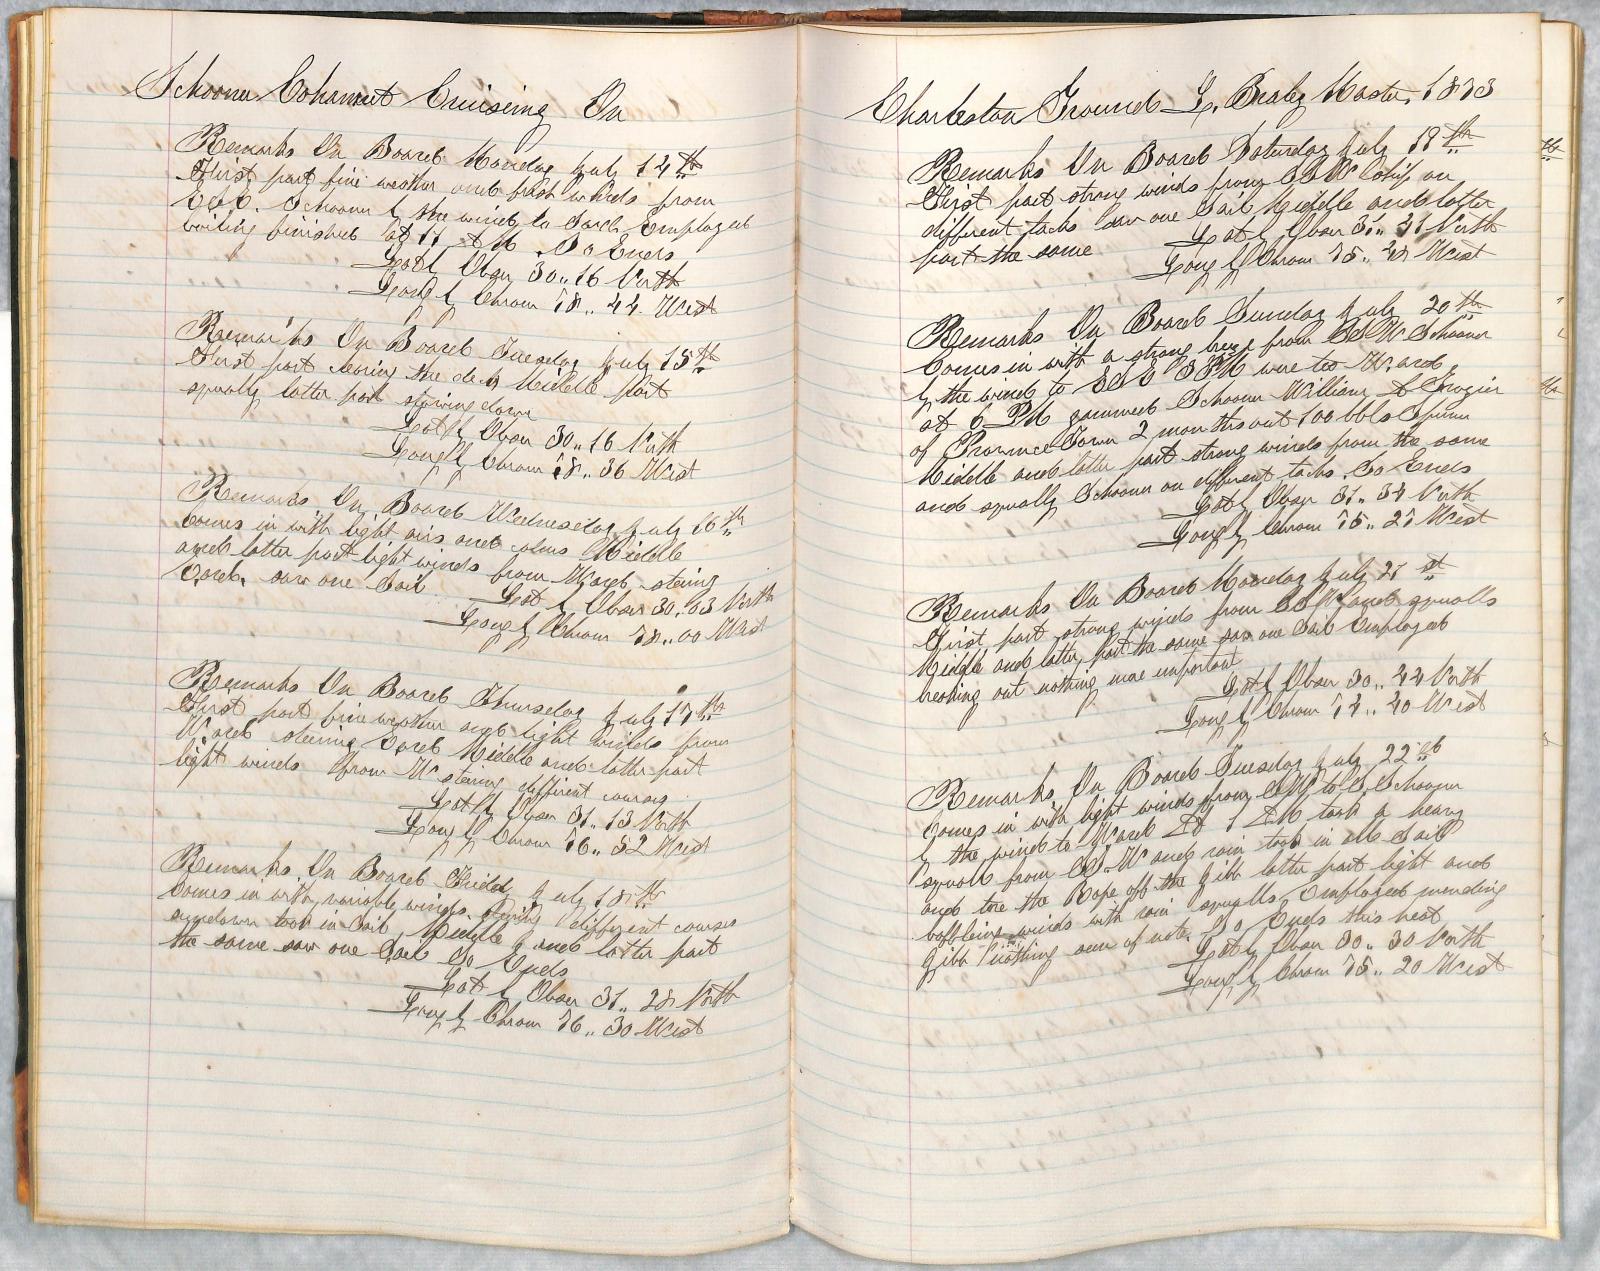 Schooner Cohannet Cruiseing On
Remarks On Board Monday July 14th
First part fine weather and fresh winds from
E.S.E. Schooner by the wind to S.ard Employed
boiling finished at 11 AM So Ends
Lat by Obser 30,,16 North
Long by Chrom 78,,44 West
Remarks On Board Tuesday July 15th
First part clearing the deck Middle part
squally latter part stowing down
Lat by Obser 30,,16 North
Long by Chrom 78,,36 West
Remarks On Board Wednesday July 16th
Comes in with light airs and calms Middle
and latter part light winds from W.ard stering
E.ard. saw one Sail
Lat by Obser 30,,03 North
Long by Chrom 78,,00 West
Remarks On Board Thursday July 17th
First part fine weather and light winds from
W.ard steering E.ard Middle and latter part
light winds from W stering different courses
Lat by Obser 31,,13 North
Long by Chrom 76,,52 West
Remarks On Board Friday July 18th
Comes in with variable winds. different courses
sundown took in Sail Middle and latter part
the same saw one Sail So Ends
Lat by Obser 31,,28 North
Long by Chrom 76,,30 West
Charleston Ground Master, 1873
Remarks On Board Saturday July 19th
First part strong winds from SSW on
different tacks saw one Sail Middle and latter
part the same
Lat by Obser 31,,21 North
Long by Chrom 75,,28 West
Remarks On Board Sunday July 20th
Comes in with a strong breeze from SSW Schooner
by the wind to SE PM wore to W.ard
at 6 PM gammed Schooner William A Grozier
of Province Town 2 months out 100 bbls Sperm
Middle and latter part strong winds from the same
and squally Schooner on different tacks So Ends
Lat by Obser 31,,34 North
Long by Chrom 75,,21 West
Remarks On Board Monday July 21st
First part strong winds from SSW and squalls
Middle and latter part the same saw one Sail Employed
breaking out nothing more important
Lat by Obser 30,,44 North
Long by Chrom 74,,40 West
Remarks On Board Tuesday July 22nd
Comes in with light winds from SW to S. Schooner
by the wind to W.ard At 1 AM took a heavy
squall from S.W and rain took in all Sail
and tore the Rope off the Gibb latter part light and
baffleing winds with rain squalls Employed mending
Gibb nothing seen of note. So Ends this
Lat by Obser 30,,30 North
Long by Chrom 75,,20 West